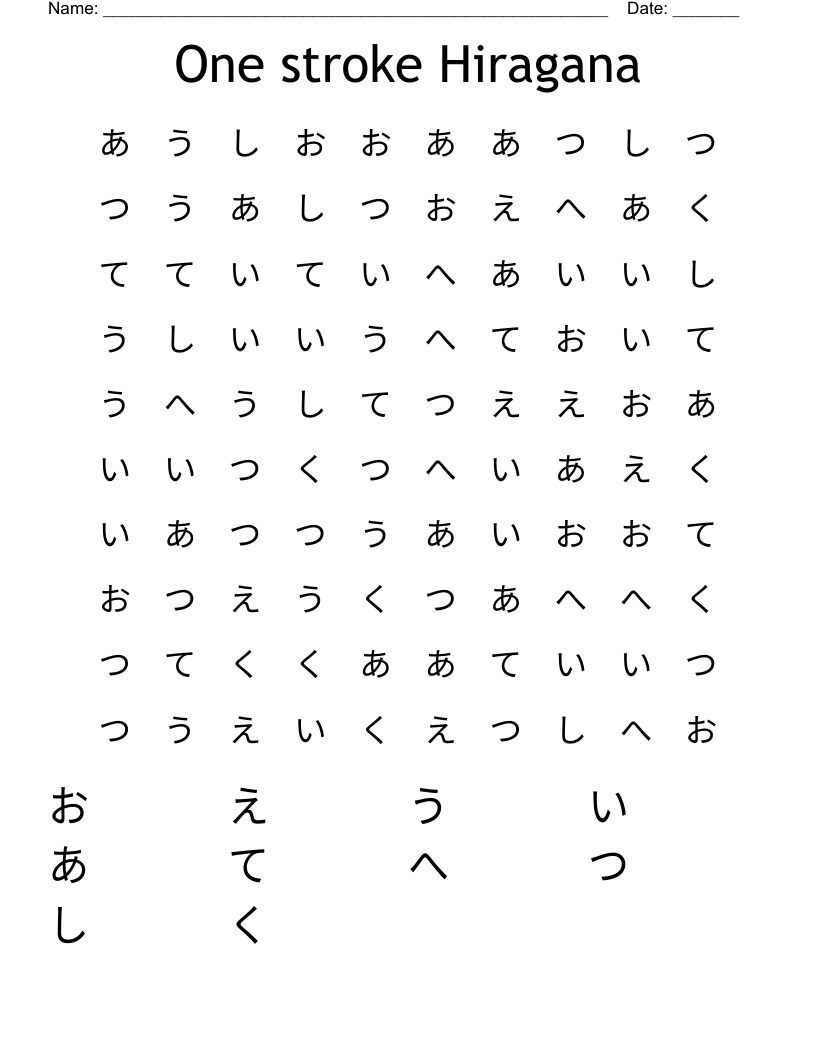 Name: _____________________________________________________ Date: _______
One stroke Hiragana
あ う し お お あ あ つ し つ
つ う あ し つ お え へ あ く
て て い て い へ あ い い し
う し い い う へ て お い て
う へ う し て つ え え お あ
い い つ く つ へ い あ え く
い あ つ つ う あ い お お て
お つ え う く つ あ へ へ く
つ て く く あ あ て い い つ
つ う え い く え つ し へ お
お え う い
あ て へ つ
し く